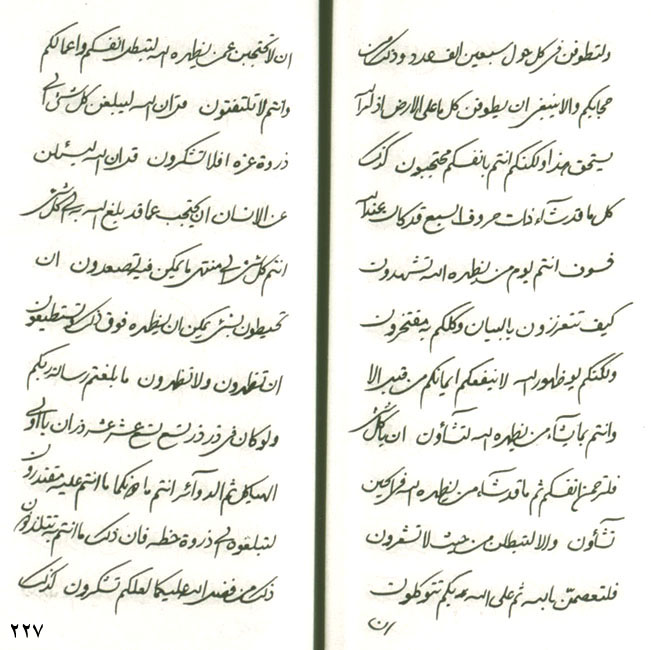 ولتطوفن في كل حول سبعين الف عدد وذلك من
حجابكم والا ينبغي ان يطوفن كل ما على الارض اذ لم
يستحق هذا ولكنكم انتم بانفسكم محتجبون كذلك
كل ما قد شاء ذات حروف السبع قد كان عند الله
فسوف انتم يوم من يظهره الله تشهدون
كيف تتعززون بالبيان وكلكم به مفتخرون
ولكنكم يوم ظهور الله لا ينفعكم ايمانكم من قبل الا
وانتم بما يشاء من يظهره الله لتشاؤن ان يا كل شئ
فلترحمن انفسكم ثم ما قد شاء من يظهره الله في الحين
تشاؤن والا لتبطلن من حيث لا تشعرون
فلتعصمن بالله ثم على الله ربكم تتوكلون
ان
ان لا تحتجبن عمن يظهره الله لتبطل انفسكم واعمالكم
وانتم لا تلتفتون قد ان الله ليبلغن كل شئ الى
ذروة عزه افلا تشكرون قد ان الله ليسئلن
عن الانسان ان يحتجب عما قد بلغ الله به الى كل شئ
انتم كل شئ الى منتهى ما يمكن فيه تصعدون ان
تحيطون بشئ يمكن ان يظهره فوق ذلك لو تستطيعون
ان تظهرون ولا تظهرون ما بلغتم رسالة ربكم
ولو كان في ذر ذر تسع تسع عشر عشر ذر ان يا اولي
الهياكل ثم الدوائر انتم ما انتم عليه مقتدرون
لتبلغوه الى ذروة حظه فان ذلك ما انتم به تتلذذون
ذلك من فضل الله عليكم لعلكم تشكرون كذلك
٢٢٧